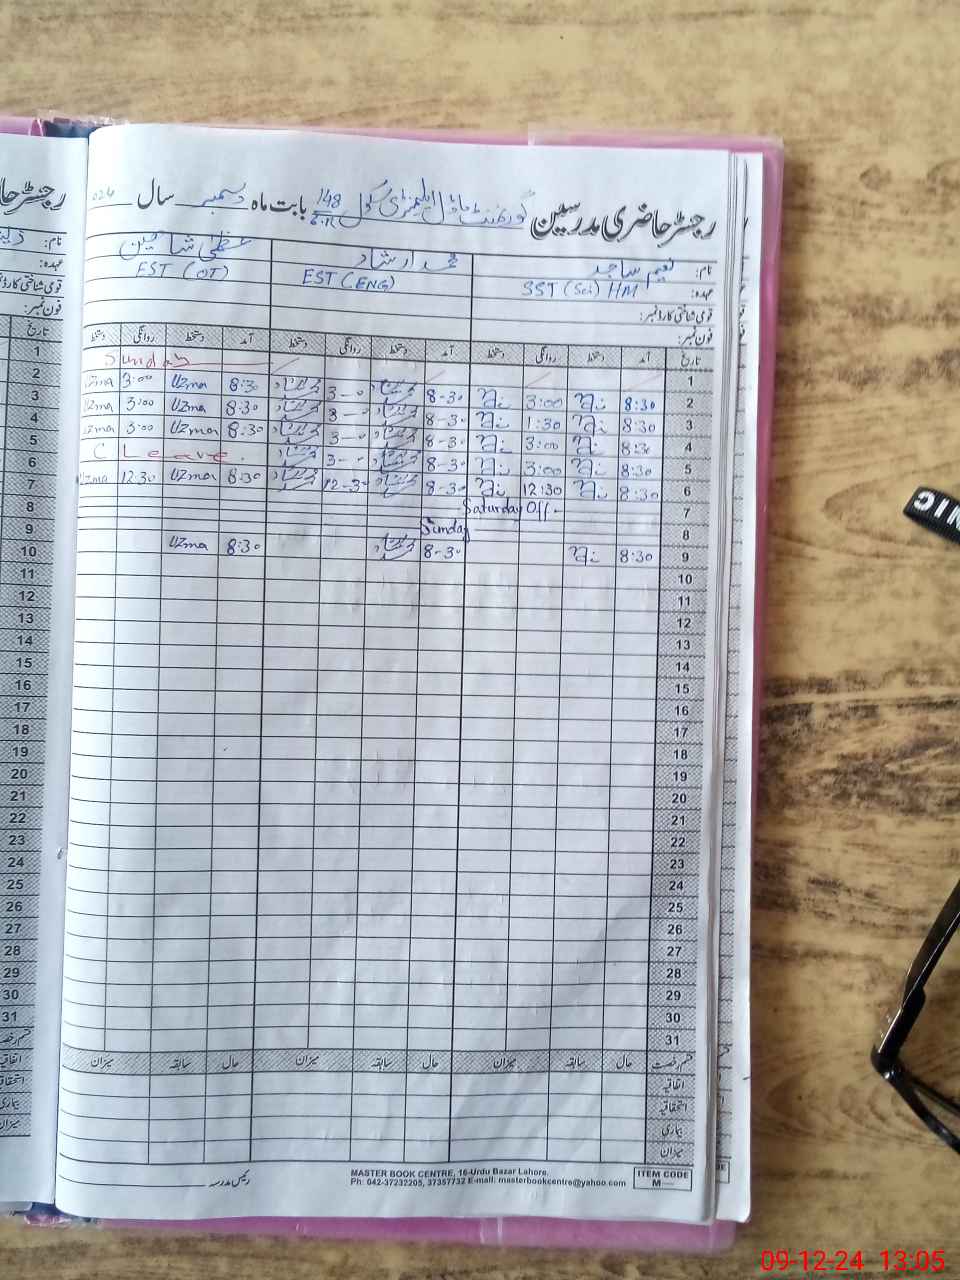 رجسٹر حاضری مدرسین گورنمنٹ ماڈل ایلیمنٹری سکول 148 بابت ماہ دسمبر سال
نام: نعیم ساجد محمد ارشاد عظمیٰ شاہین
عہدہ: SST (Sci) HM EST (ENG) EST (OT)
قومی شناختی کارڈ نمبر:
فون نمبر:
تاریخ آمد دستخط روانگی دستخط آمد دستخط روانگی دستخط آمد دستخط روانگی دستخط
1 Sunday
2 8:30 3:00 8-30 3-0 8:30 Uzma 3:00 Uzma
3 8:30 1:30 8-30 3-0 8:30 Uzma 3:00 Uzma
4 8:30 3:00 8-30 3-0 8:30 Uzma 3:00 Uzma
5 8:30 3:00 8-30 3-0 C Leave.
6 8:30 12:30 8-30 12-30 8:30 Uzma 12:30 Uzma
7 Saturday Off.
8 Sunday
9 8:30 8-30 8:30 Uzma
10
11
12
13
14
15
16
17
18
19
20
21
22
23
24
25
26
27
28
29
30
31
قسم رخصت حال سابقہ میزان حال سابقہ میزان حال سابقہ میزان
اتفاقیہ
استحقاقیہ
بیماری
میزان
رئیس مدرسہ
MASTER BOOK CENTRE, 16-Urdu Bazar Lahore.
Ph: 042-37232205, 37357732 E-mail: masterbookcentre@yahoo.com
ITEM CODE
M
رجسٹر حا
نام:
عہدہ:
قومی شناختی کارڈ
فون نمبر:
تاریخ
1
2
3
4
5
6
7
8
9
10
11
12
13
14
15
16
17
18
19
20
21
22
23
24
25
26
27
28
29
30
31
09-12-24 13:05